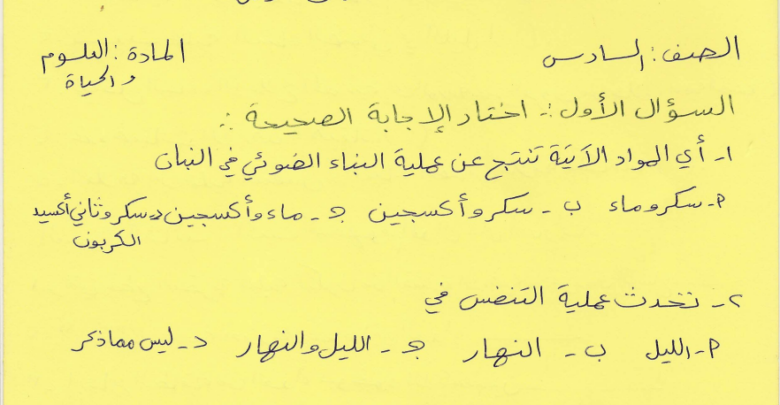 الصف: السادس المادة: العلوم
والحياة
السؤال الأول:- اختار الإجابة الصحيحة :-
١- أي المواد الآتية تنتج عن عملية البناء الضوئي في النبات
٢- سكر وماء ب- سكر وأكسجين ج- ماء وأكسجين د- سكر وثاني أكسيد
الكربون
٢- تحدث عملية التنفس في
٢- الليل ب- النهار ج- الليل والنهار د- ليس مما ذكر